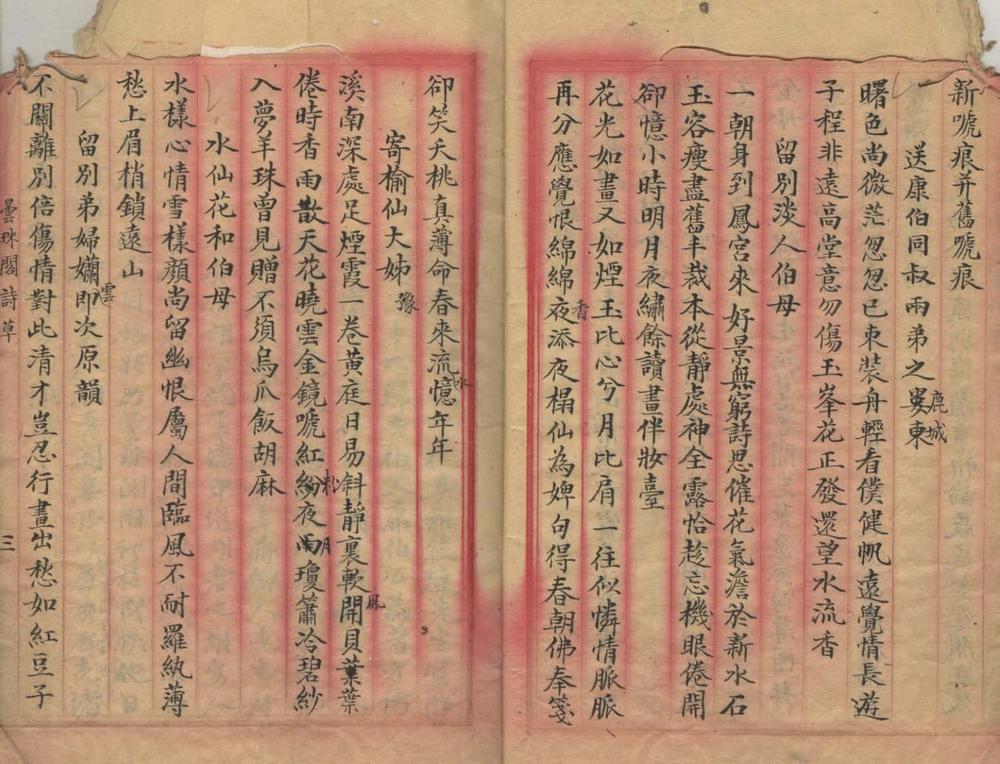 新嗁痕并舊嗁痕
送康伯同叔兩弟之婁東
鹿城
曙色尚微茫忽忽已束裝舟輕看僕健帆遠覺情長遊
子程非遠高堂意勿傷玉峯花正發還望水流香
留別淡人伯母
一朝身到鳳宮來好景無窮詩思催花氣澹於新水石
玉容瘦盡舊羊裁本從靜處神全露恰趁忘機眼倦開
卻憶小時明月夜繡餘讀畫伴妝臺
花光如畫又如煙玉比心兮月比肩一往似憐情脈脈
再分應覺恨綿綿夜添夜榻仙為婢句得春朝佛奉箋
香
卻笑夭桃真薄命春來流憶年年
水
寄榆仙大姊
豫
溪南深處足煙霞一卷黃庭日易斜靜裏軟開貝葉葉
風
倦時香雨散天花曉雲金鏡嗁紅紛夜雨瓊簫冷碧紗
粉
月
入夢羊珠曾見贈不須烏爪飯胡麻
水仙花和伯母
水樣心情雪樣顏尚留幽恨屬人間臨風不耐羅紈薄
愁上眉梢鎖遠山
留別弟婦孀即次原韻
雲
不關離別倍傷情對此清才豈忍行畫出愁如紅豆子
曇珠閣詩草
三